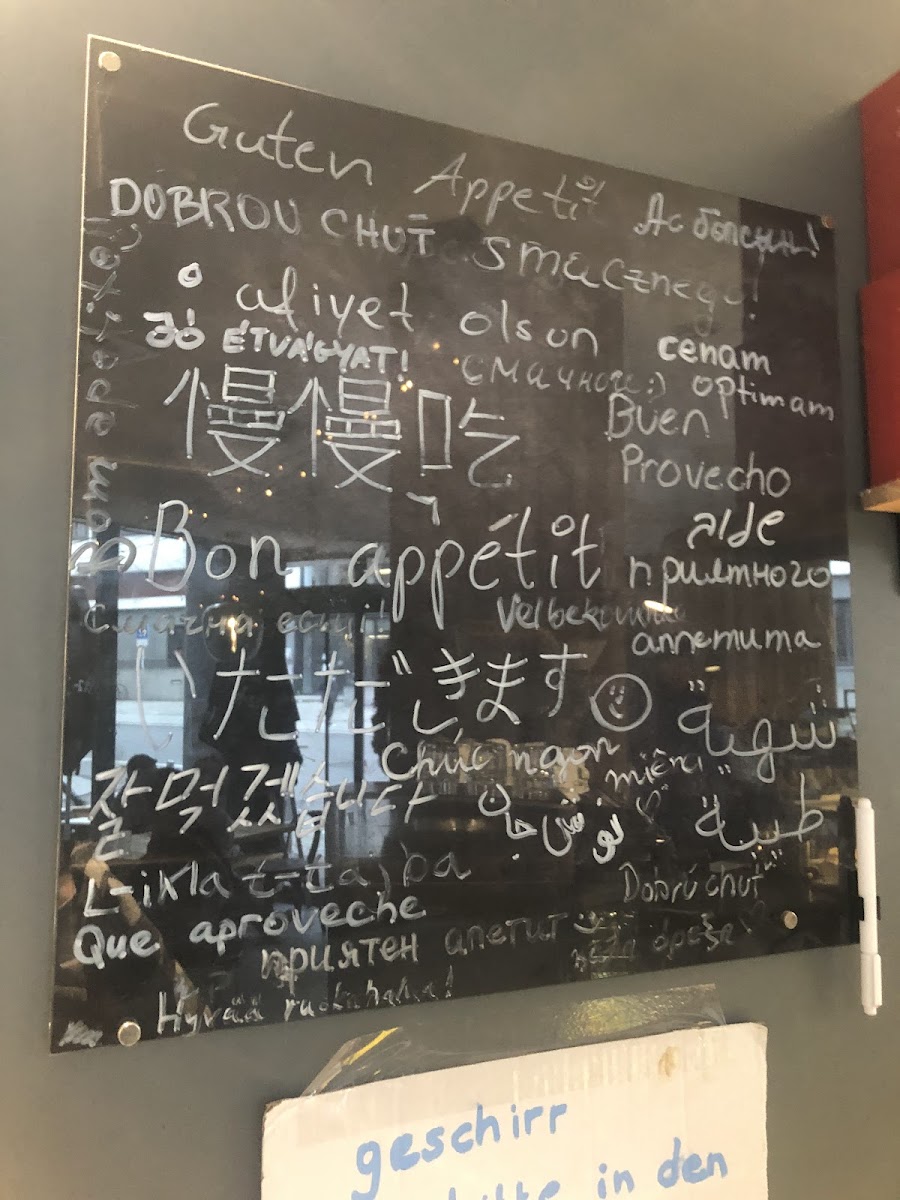 Guten Appetit
Ас болсын!
DOBROU CHUŤ
smacznego!
afiyet olsun
JÓ ÉTVÁGYAT!
смачного :)
cenam
optimam
慢慢吃
Buen
Provecho
Bon appétit
приятного
аппетита
Velbekomme
いただきます
شهية
طيبة
Chúc ngon
miệng
잘 먹겠습니다
نوش جان
L-ikla t-tajba
Dobrú chuť
Que aproveche
приятен апетит
όρεξη
Hyvää ruokahalua!
geschirr
in den